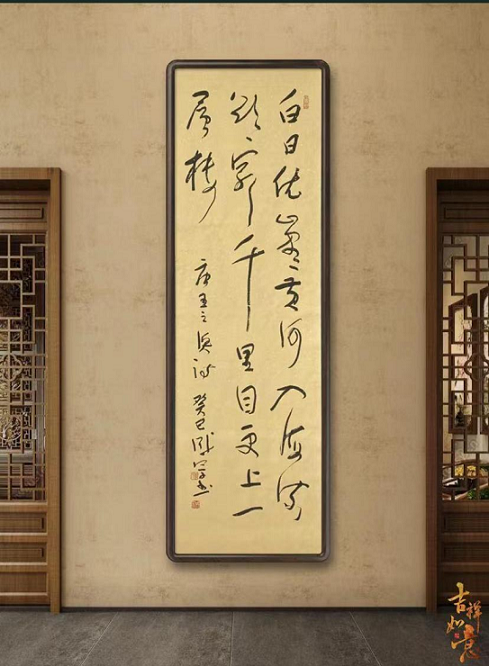 白日依山盡黄河入海流
欲窮千里目更上一
層樓
唐王之渙诗 癸巳 书
吉祥
如意